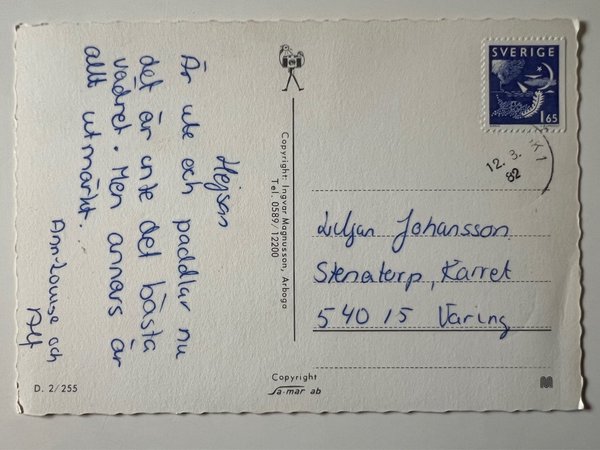 Hejsan
Är ute och paddlar nu
det är inte det bästa
vädret. Men annars är
allt utmärkt.
Ann-Louise och
Alf
D. 2/255
Copyright: Ingvar Magnusson, Arboga
Tel. 0589/12200
Copyright
Sa-mar ab
SVERIGE
1.65
12. 3.
82
K 1
Liljan Johansson
Stenatorp, Karret
540 15 Väring
M